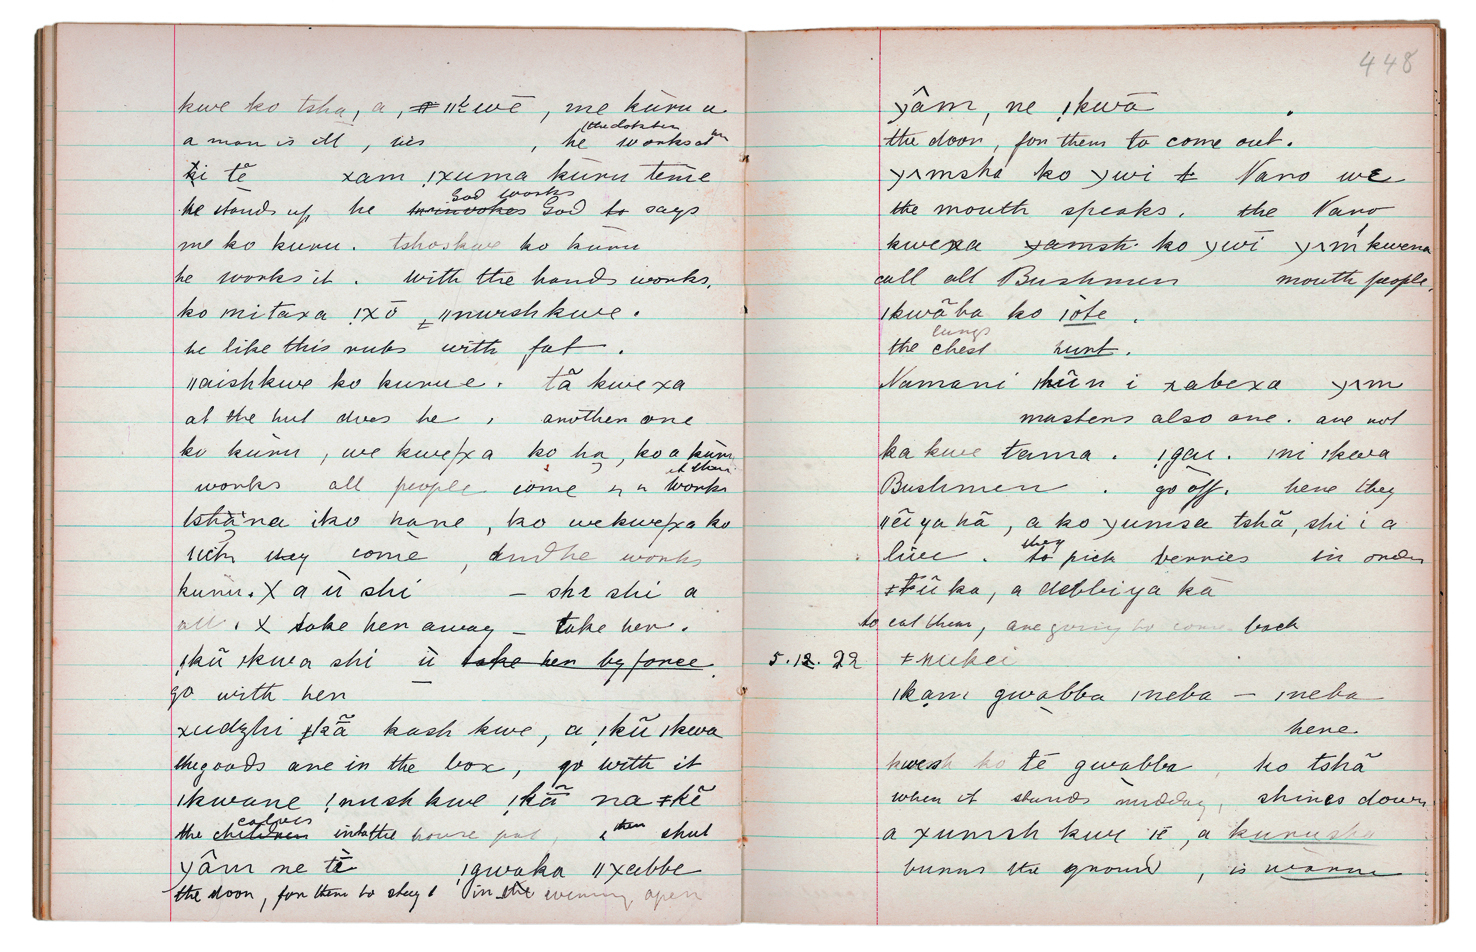 kwe ko tsha, a, ǁkwē, me kūru u
a man is ill, lies, he works at
(the doktsben
ki tē xam !xuma kūru tēme
God works
he stands up, he God to says
me ko kuru. tshoskwe ko kūru
he works it. with the hands works.
ko mitaxa !xō, ǁnurshkwe.
he like this rubs with fat.
ǁaishkwe ko kurue. tã kwe xa
at the hut does he, another one
ko kūru, we kwe/xa ko ha, ko a kūru
works all people come works
tshāna iko hane, ko wekwe/xa ko
with they come, and he works
kuru. X a ü shi — she shi a
all. X take her away — take her.
!kũ ǀkwa shi ü take her by force.
go with her
xudzhi ǂkã kash kwe, a !kũ ǀkwa
the goods are in the box, go with it
ǀkwane !nush kwe !kã na ǂkẽ
calves
the children into the house put, then shut
yâm ne tē !gwaka ǁxebbe
the door, for them to stay in the evening open
448
yâm, ne !kwā
the door, for them to come out.
yʌmsha ko ywi ǂ Naro we
the mouth speaks. the Naro
kwexa xamsh ko ywī yʌm kwena
call all Bushmen mouth people,
ǀkwāba ko ǀōte.
lungs
the chest hurt.
Namani ǀkũn i xabexa yʌm
masters also are. are not
ka kwe tama. !gau. ǀni ǀkwa
Bushmen. go off. here they
ǁēi ya hā, a ko yumsa tshā, shi i a
live. they to pick berries in order
ǂtũ ka, a debbiya kā
to eat them, are going to come back
5.12.22 ǂnukei
ǀkam gwabba ǀneba — ǀneba
here
kwesh ko tē gwabba, ko tshã
when it stands midday, shines down
a xumsh kwe ǀē, a kurusha
burns the ground, is warm